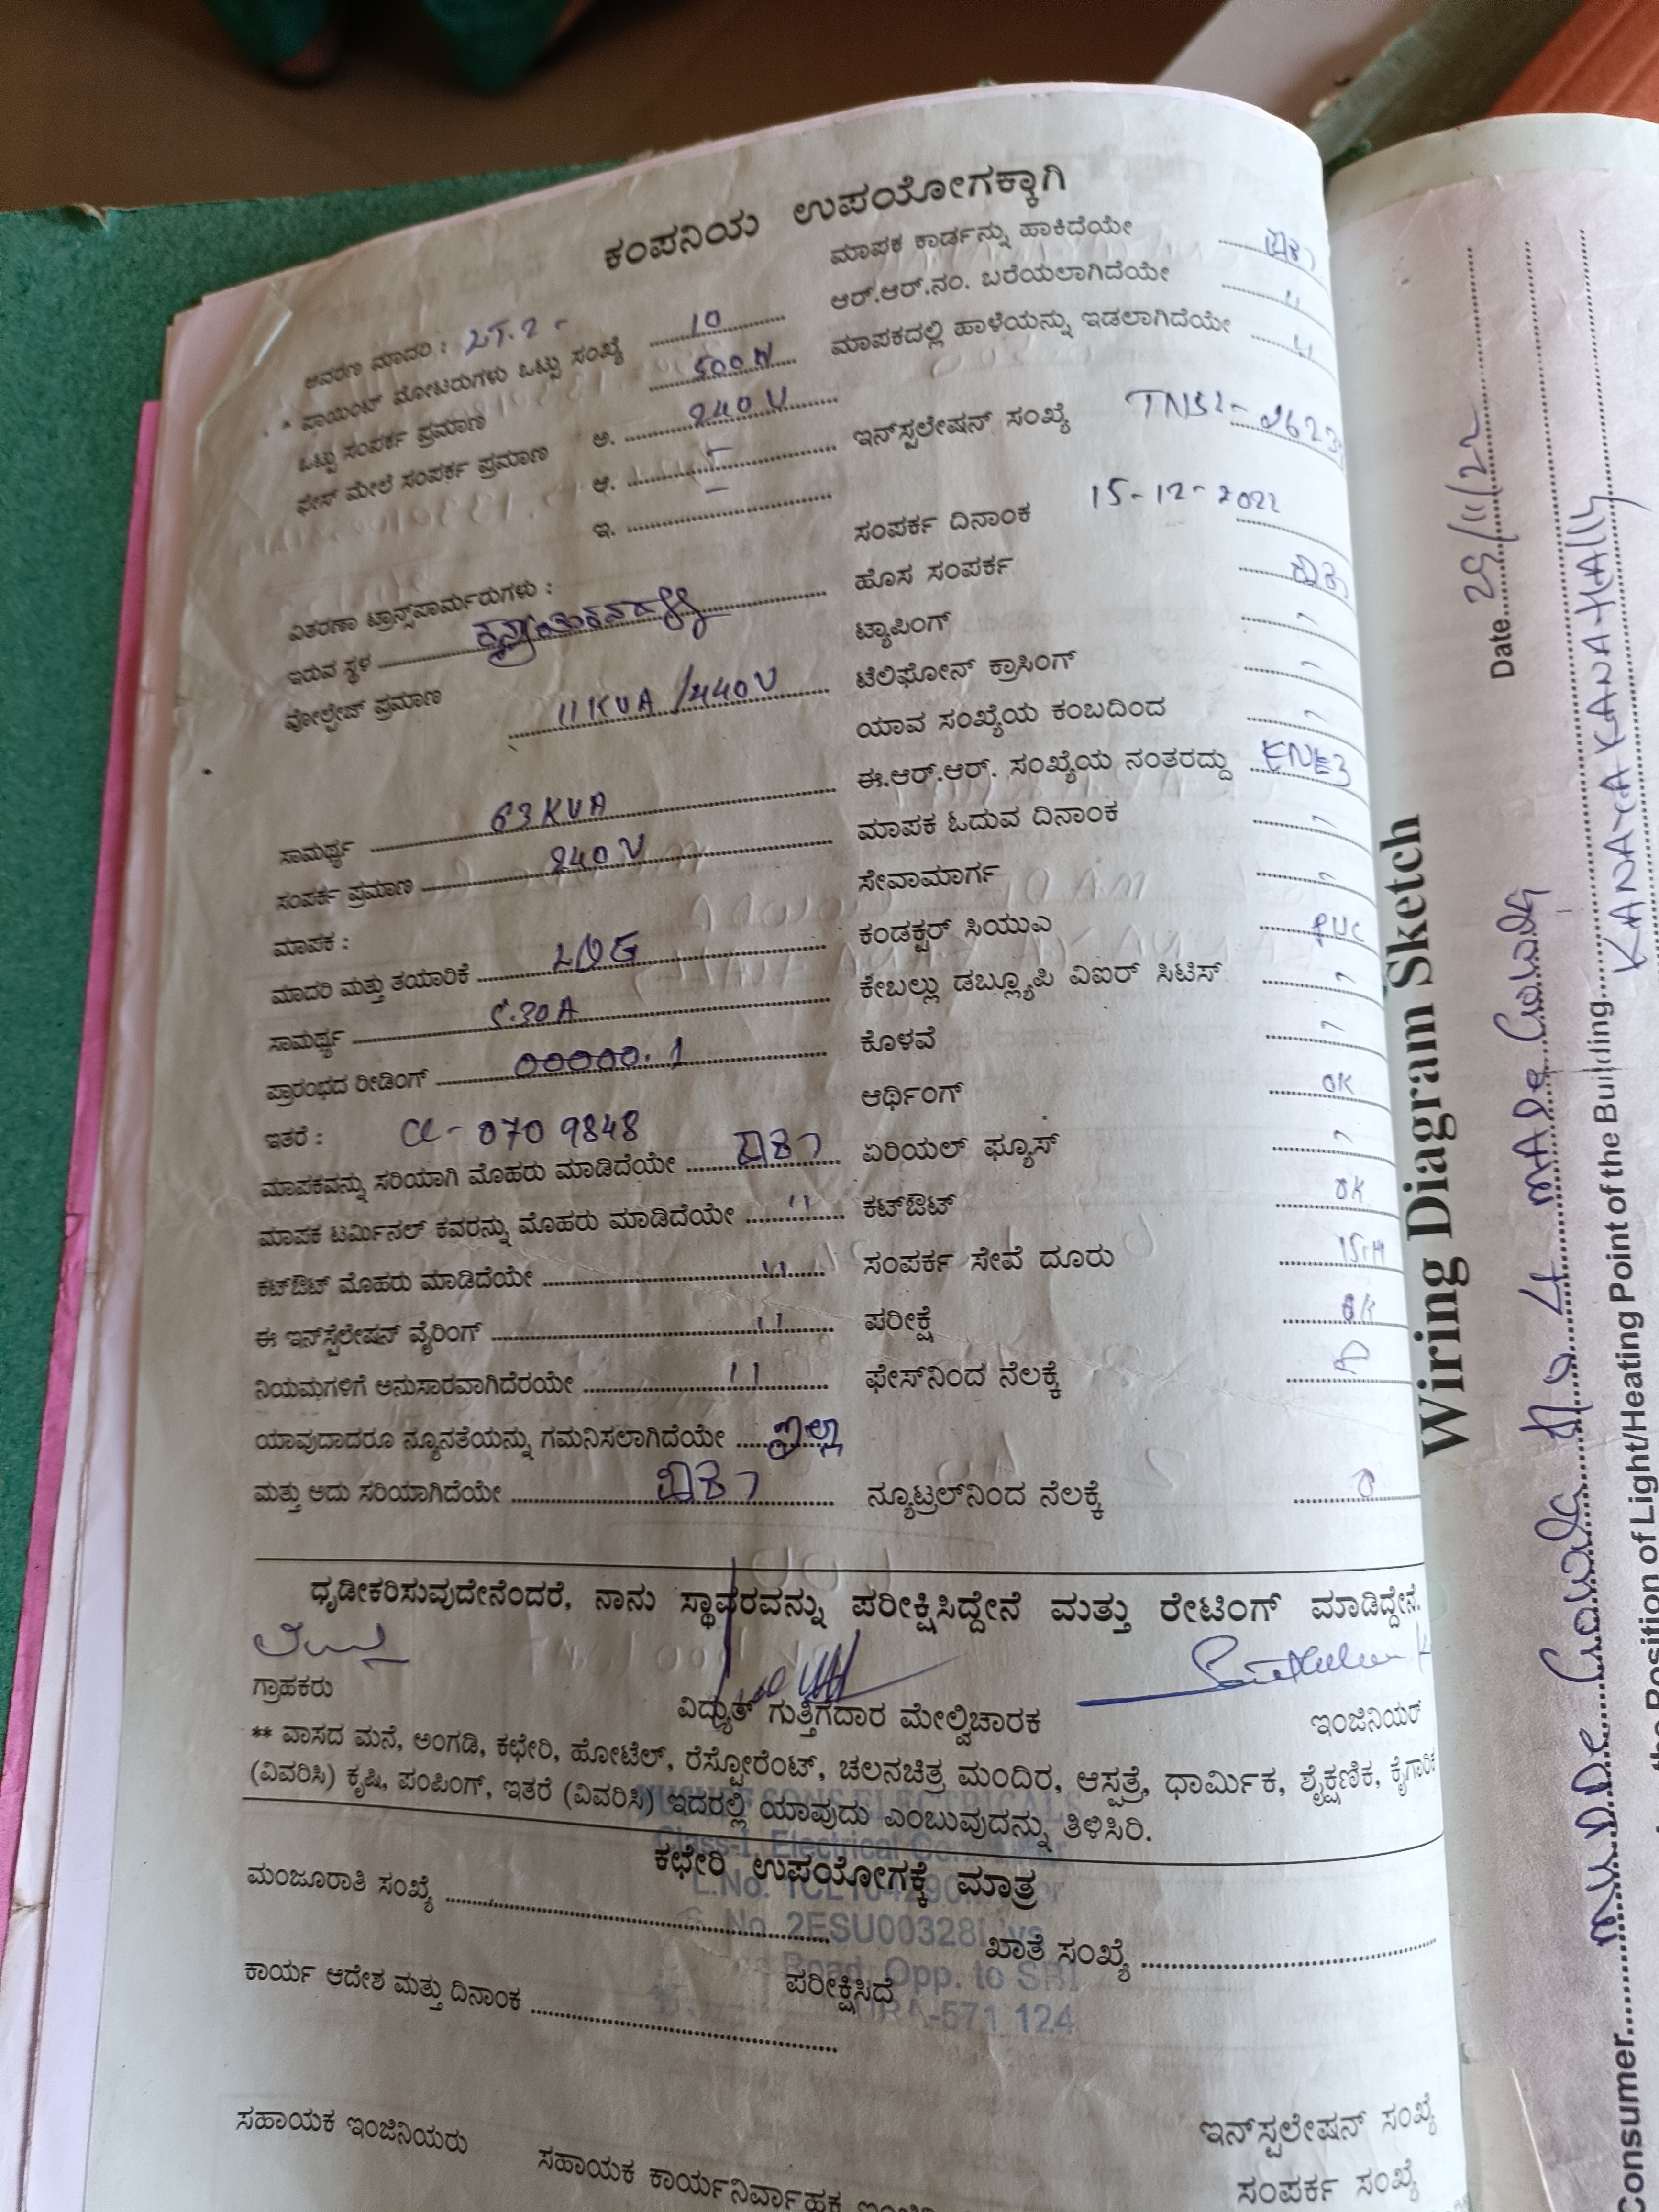 ಕಂಪನಿಯ ಉಪಯೋಗಕ್ಕಾಗಿ
ಆವರಣ ಮಾದರಿ : LT.2-
* ಪಾಯಿಂಟ್ ಮೋಟರುಗಳು ಒಟ್ಟು ಸಂಖ್ಯೆ 10
ಒಟ್ಟು ಸಂಪರ್ಕ ಪ್ರಮಾಣ 500 W
ಫೇಸ್ ಮೇಲೆ ಸಂಪರ್ಕ ಪ್ರಮಾಣ ಅ. 240 V
ಆ. -
ಇ. -
ವಿತರಣಾ ಟ್ರಾನ್ಸ್‌ಪಾರ್ಮರುಗಳು :
ಇರುವ ಸ್ಥಳ
ವೋಲ್ಟೇಜ್ ಪ್ರಮಾಣ 11 KVA /440 V
ಸಾಮರ್ಥ್ಯ 63 KVA
ಸಂಪರ್ಕ ಪ್ರಮಾಣ 240 V
ಮಾಪಕ :
ಮಾದರಿ ಮತ್ತು ತಯಾರಿಕೆ
ಸಾಮರ್ಥ್ಯ 5.30A
ಪ್ರಾರಂಭದ ರೀಡಿಂಗ್ 00000.1
ಇತರೆ : 070 9848
ಮಾಪಕವನ್ನು ಸರಿಯಾಗಿ ಮೊಹರು ಮಾಡಿದೆಯೇ
ಮಾಪಕ ಟರ್ಮಿನಲ್ ಕವರನ್ನು ಮೊಹರು ಮಾಡಿದೆಯೇ "
ಕಟ್‌ಔಟ್ ಮೊಹರು ಮಾಡಿದೆಯೇ "
ಈ ಇನ್‌ಸ್ಟೆಲೇಷನ್ ವೈರಿಂಗ್ "
ನಿಯಮಗಳಿಗೆ ಅನುಸಾರವಾಗಿದೆರಯೇ "
ಯಾವುದಾದರೂ ನ್ಯೂನತೆಯನ್ನು ಗಮನಿಸಲಾಗಿದೆಯೇ ಇಲ್ಲ
ಮತ್ತು ಅದು ಸರಿಯಾಗಿದೆಯೇ
ಮಾಪಕ ಕಾರ್ಡನ್ನು ಹಾಕಿದೆಯೇ
ಆರ್.ಆರ್.ನಂ. ಬರೆಯಲಾಗಿದೆಯೇ "
ಮಾಪಕದಲ್ಲಿ ಹಾಳೆಯನ್ನು ಇಡಲಾಗಿದೆಯೇ "
ಇನ್‌ಸ್ಪಲೇಷನ್ ಸಂಖ್ಯೆ
ಸಂಪರ್ಕ ದಿನಾಂಕ 15-12-2022
ಹೊಸ ಸಂಪರ್ಕ
ಟ್ಯಾಪಿಂಗ್
ಟೆಲಿಫೋನ್ ಕ್ರಾಸಿಂಗ್
ಯಾವ ಸಂಖ್ಯೆಯ ಕಂಬದಿಂದ
ಈ.ಆರ್.ಆರ್. ಸಂಖ್ಯೆಯ ನಂತರದ್ದು
ಮಾಪಕ ಓದುವ ದಿನಾಂಕ
ಸೇವಾಮಾರ್ಗ
ಕಂಡಕ್ಟರ್ ಸಿಯುಎ PVC
ಕೇಬಲ್ಲು ಡಬ್ಲ್ಯೂಪಿ ವಿಐರ್ ಸಿಟಿಸ್
ಕೊಳವೆ
ಆರ್ಥಿಂಗ್ OK
ಏರಿಯಲ್ ಫ್ಯೂಸ್
ಕಟ್‌ಔಟ್ OK
ಸಂಪರ್ಕ ಸೇವೆ ದೂರು
ಪರೀಕ್ಷೆ OK
ಫೇಸ್‌ನಿಂದ ನೆಲಕ್ಕೆ
ನ್ಯೂಟ್ರಲ್‌ನಿಂದ ನೆಲಕ್ಕೆ
ಧೃಡೀಕರಿಸುವುದೇನೆಂದರೆ, ನಾನು ಸ್ಥಾವರವನ್ನು ಪರೀಕ್ಷಿಸಿದ್ದೇನೆ ಮತ್ತು ರೇಟಿಂಗ್ ಮಾಡಿದ್ದೇನೆ.
ಗ್ರಾಹಕರು ವಿದ್ಯುತ್ ಗುತ್ತಿಗೆದಾರ ಮೇಲ್ವಿಚಾರಕ ಇಂಜಿನಿಯರ್
** ವಾಸದ ಮನೆ, ಅಂಗಡಿ, ಕಛೇರಿ, ಹೋಟೆಲ್, ರೆಸ್ಟೋರೆಂಟ್, ಚಲನಚಿತ್ರ ಮಂದಿರ, ಆಸ್ಪತ್ರೆ, ಧಾರ್ಮಿಕ, ಶೈಕ್ಷಣಿಕ,
(ವಿವರಿಸಿ) ಕೃಷಿ, ಪಂಪಿಂಗ್, ಇತರೆ (ವಿವರಿಸಿ) ಇದರಲ್ಲಿ ಯಾವುದು ಎಂಬುವುದನ್ನು ತಿಳಿಸಿರಿ.
ಕಛೇರಿ ಉಪಯೋಗಕ್ಕೆ ಮಾತ್ರ
ಮಂಜೂರಾತಿ ಸಂಖ್ಯೆ
ಖಾತೆ ಸಂಖ್ಯೆ
ಕಾರ್ಯ ಆದೇಶ ಮತ್ತು ದಿನಾಂಕ
ಪರೀಕ್ಷಿಸಿದೆ
ಸಹಾಯಕ ಇಂಜಿನಿಯರು
ಸಹಾಯಕ ಕಾರ್ಯನಿರ್ವಾಹಕ
ಇನ್‌ಸ್ಪಲೇಷನ್ ಸಂಖ್ಯೆ
ಸಂಪರ್ಕ ಸಂಖ್ಯೆ
Wiring Diagram Sketch
Date 29/11/22
Position of Light/Heating Point of the Building